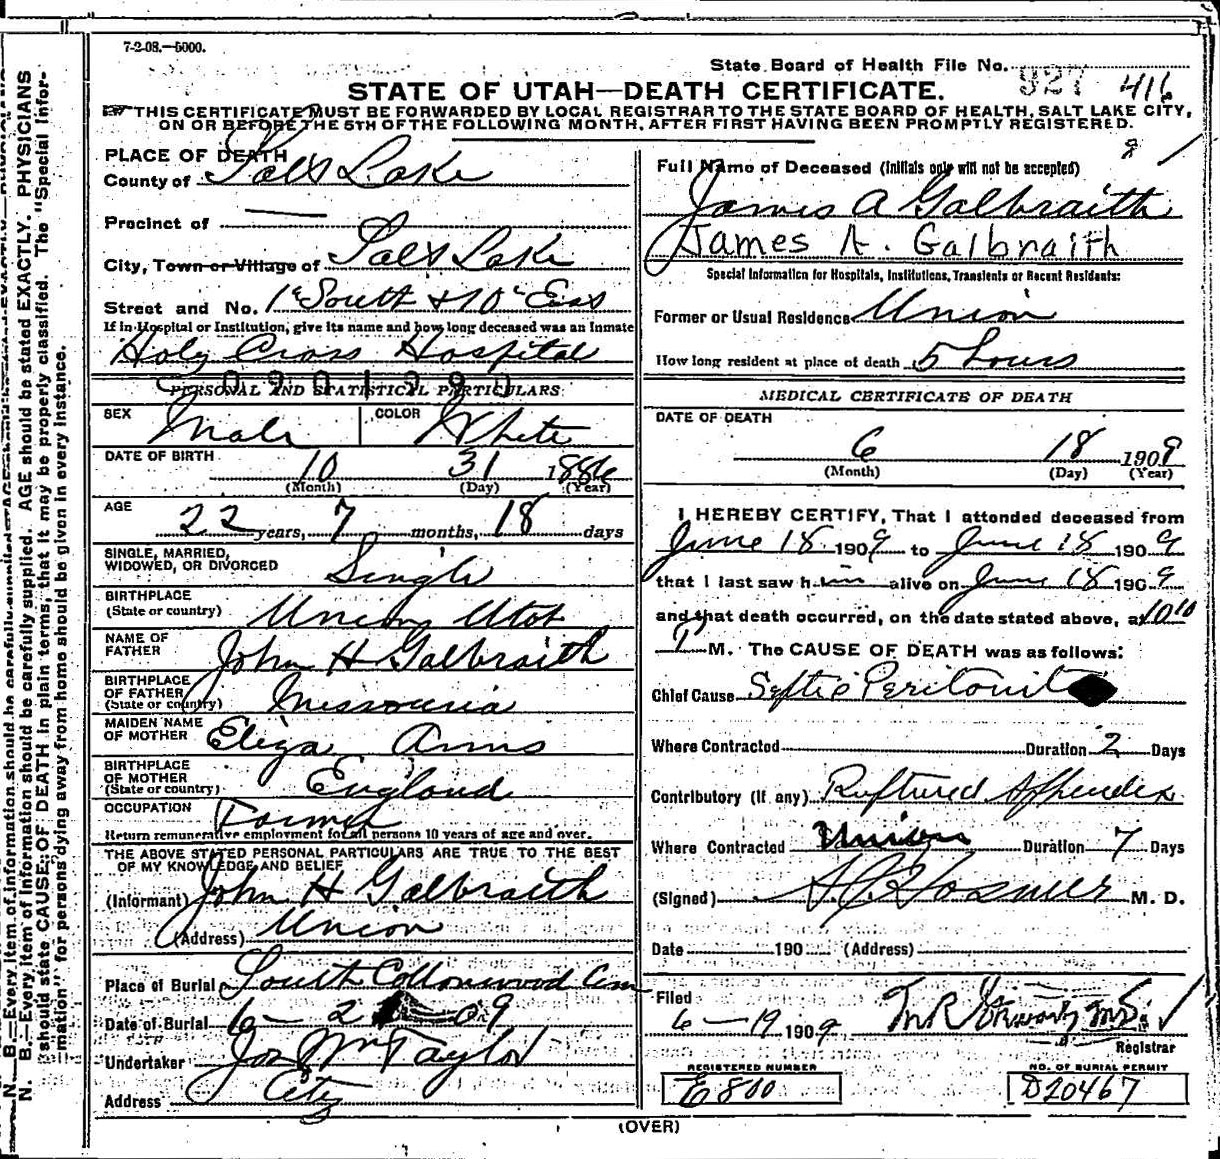 7-2-08.—5000.
State Board of Health File No. 927 416
STATE OF UTAH—DEATH CERTIFICATE.
THIS CERTIFICATE MUST BE FORWARDED BY LOCAL REGISTRAR TO THE STATE BOARD OF HEALTH, SALT LAKE CITY,
ON OR BEFORE THE 5TH OF THE FOLLOWING MONTH, AFTER FIRST HAVING BEEN PROMPTLY REGISTERED.
PLACE OF DEATH
County of Salt Lake
Precinct of —
City, Town or Village of Salt Lake
Street and No. 1st South & 10th East
If in Hospital or Institution, give its name and how long deceased was an Inmate
Holy Cross Hospital
PERSONAL AND STATISTICAL PARTICULARS
SEX Male COLOR White
DATE OF BIRTH 10 31 1886
(Month) (Day) (Year)
AGE 22 years, 7 months, 18 days
SINGLE, MARRIED,
WIDOWED, OR DIVORCED Single
BIRTHPLACE
(State or country) Union Utah
NAME OF
FATHER John H Galbraith
BIRTHPLACE
OF FATHER
(State or country) Missouria
MAIDEN NAME
OF MOTHER Eliza Anns
BIRTHPLACE
OF MOTHER
(State or country) England
OCCUPATION Farmer
Return remunerative employment for all persons 10 years of age and over.
THE ABOVE STATED PERSONAL PARTICULARS ARE TRUE TO THE BEST
OF MY KNOWLEDGE AND BELIEF
(Informant) John H Galbraith
(Address) Union
Place of Burial South Cottonwood Cem
Date of Burial 6 - 2 - 09
Undertaker Jos Wm Taylor
Address City
Full Name of Deceased (Initials only will not be accepted)
James A Galbraith
James A. Galbraith
Special Information for Hospitals, Institutions, Transients or Recent Residents:
Former or Usual Residence Union
How long resident at place of death 5 hours
MEDICAL CERTIFICATE OF DEATH
DATE OF DEATH
6 18 1909
(Month) (Day) (Year)
I HEREBY CERTIFY, That I attended deceased from
June 18 1909 to June 18 1909
that I last saw him alive on June 18 1909
and that death occurred, on the date stated above, at 10 10
P M. The CAUSE OF DEATH was as follows:
Chief Cause Septic Peritonit
Where Contracted Duration 2 Days
Contributory (if any) Ruptured Appendix
Where Contracted Union Duration 7 Days
(Signed) M. D.
Date 190 (Address)
Filed
6 - 19 1909
Registrar
REGISTERED NUMBER
E 800
NO. OF BURIAL PERMIT
D20467
(OVER)
N. B.—Every item of information should be carefully supplied. AGE should be stated EXACTLY. PHYSICIANS
should state CAUSE OF DEATH in plain terms, that it may be properly classified. The "Special Infor-
mation" for persons dying away from home should be given in every instance.